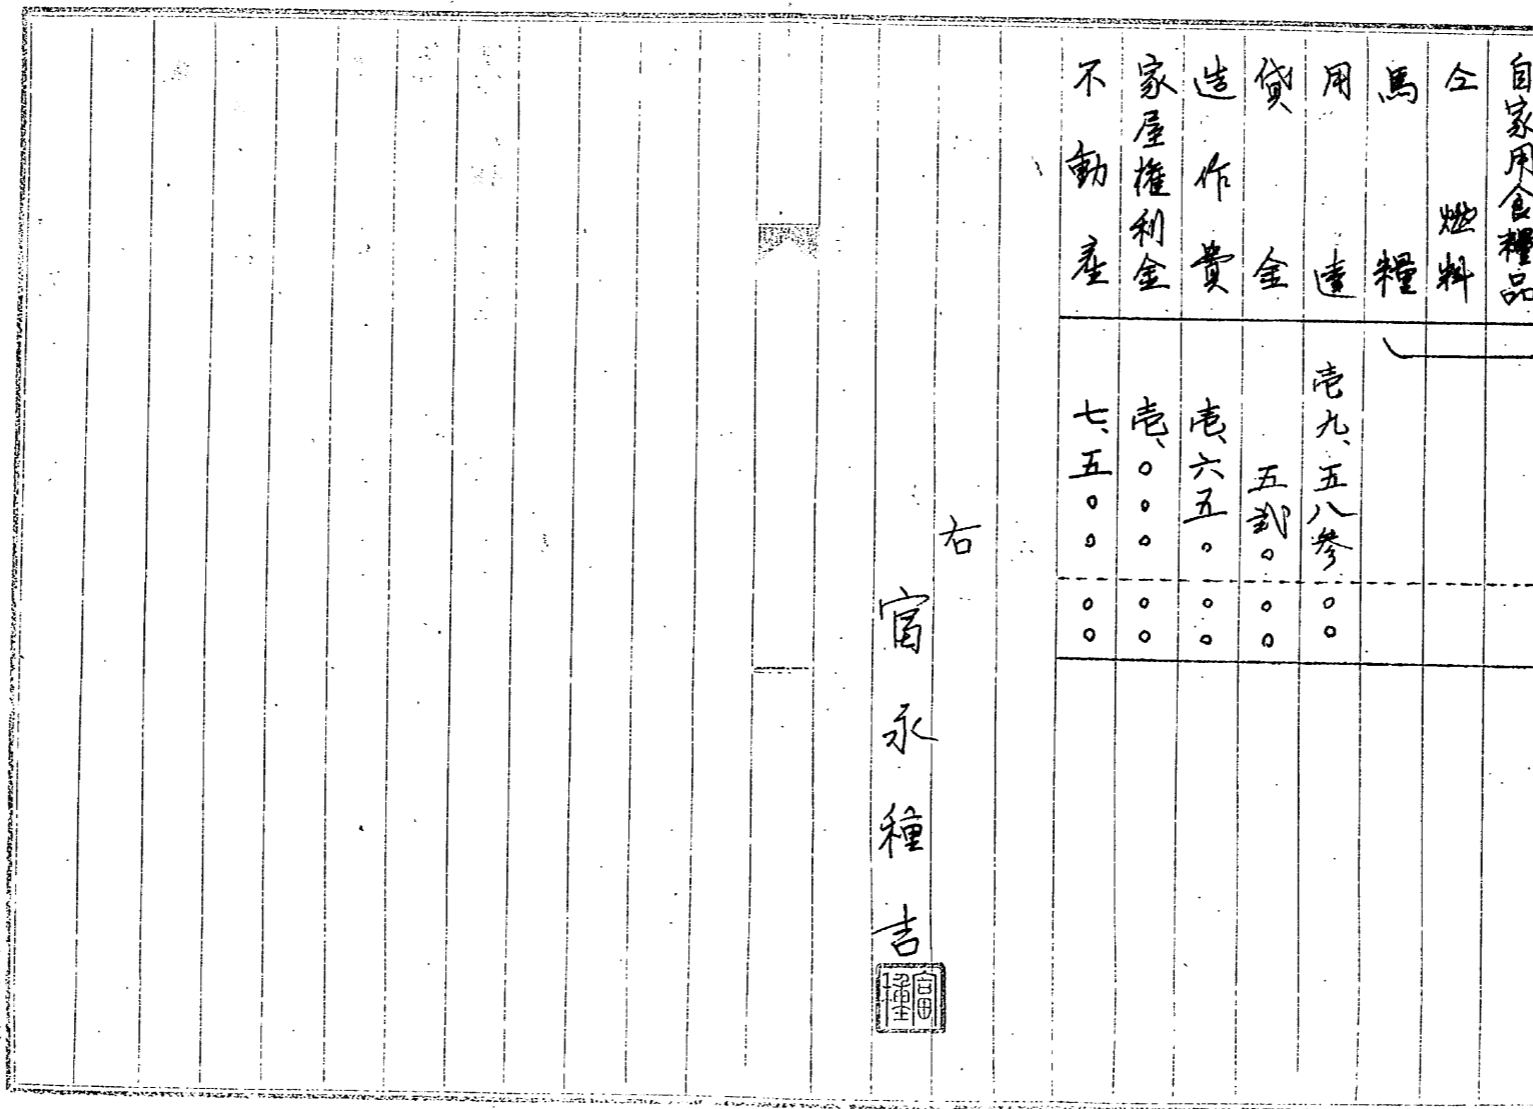 自家用食糧品
仝 燃料
馬糧
用達 壱九、五八参 〇〇
貸金 五弐〇 〇〇
造作費 壱、六五〇 〇〇
家屋権利金 壱、〇〇〇 〇〇
不動産 七、五〇〇 〇〇
右
富永種吉
富種